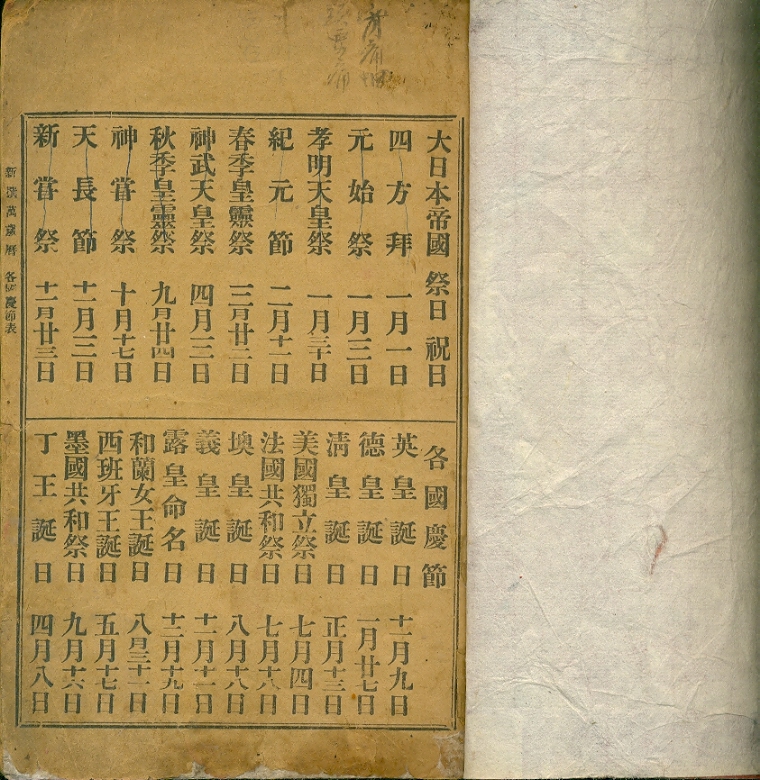 大日本帝國祭日祝日
四方拜 一月一日
元始祭 一月三日
孝明天皇祭 一月三十日
紀元節 二月十一日
春季皇靈祭 三月廿二日
神武天皇祭 四月三日
秋季皇靈祭 九月廿四日
神甞祭 十月十七日
天長節 十一月三日
新甞祭 十一月廿三日
各國慶節
英皇誕日 十一月九日
德皇誕日 一月廿七日
淸皇誕日 正月十三日
美國獨立祭日 七月四日
法國共和祭日 七月十八日
墺皇誕日 八月十八日
義皇誕日 十一月十一日
露皇命名日 十二月十九日
和蘭女王誕日 八月三十一日
西班牙王誕日 五月十七日
墨國共和祭日 九月十六日
丁王誕日 四月八日
新撰萬歲曆 各國慶節表